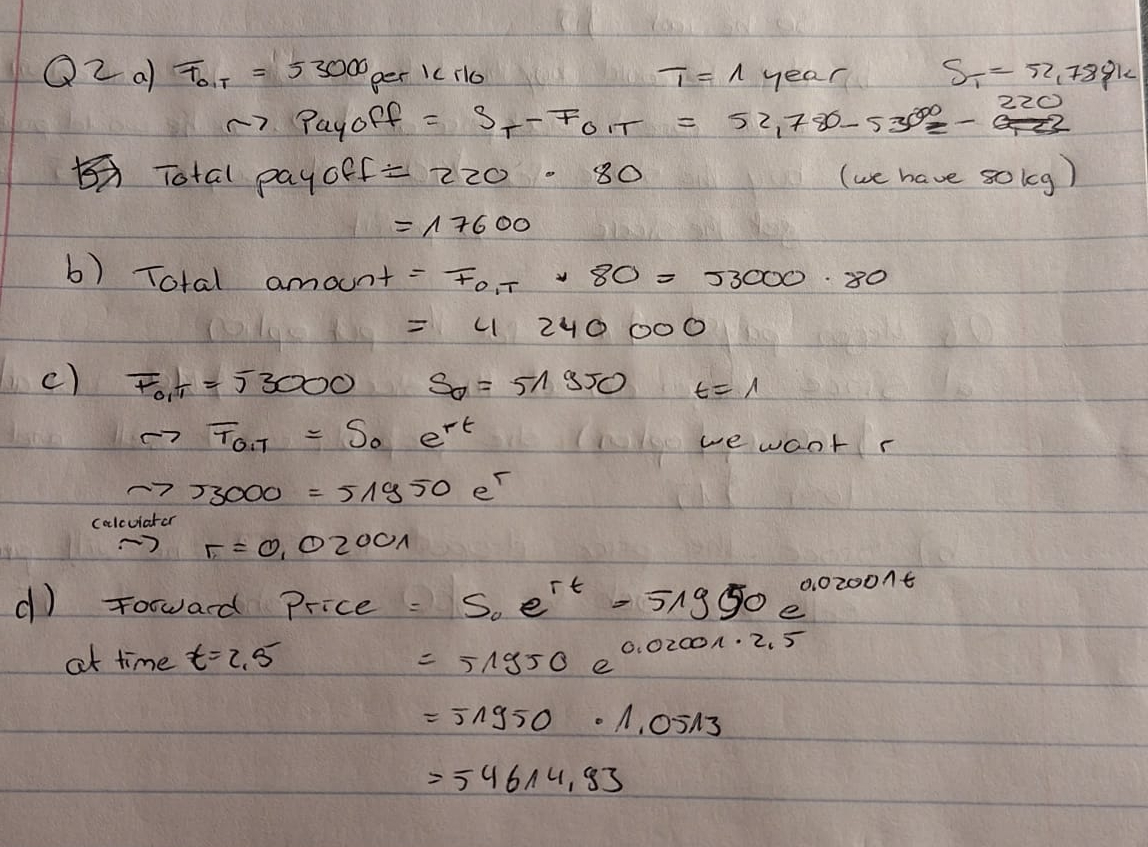 Q2 a) F₀,T = 53000 per kilo T = 1 year S_T = 52,780/k
~> Payoff = S_T - F₀,T = 52,780 - 53000 = - 220
Total payoff = 220 · 80 (we have 80kg)
= 17600
b) Total amount = F₀,T * 80 = 53000 · 80
= 4 240 000
c) F₀,T = 53000 S₀ = 51950 t = 1
~> F₀,T = S₀ e^rt we want r
~> 53000 = 51950 e^r
calculator
~> r = 0,02001
d) Forward Price = S₀ e^rt = 51950 e^0.02001t
at time t=2,5 = 51950 e^0.02001·2,5
= 51950 · 1.0513
= 54614,93